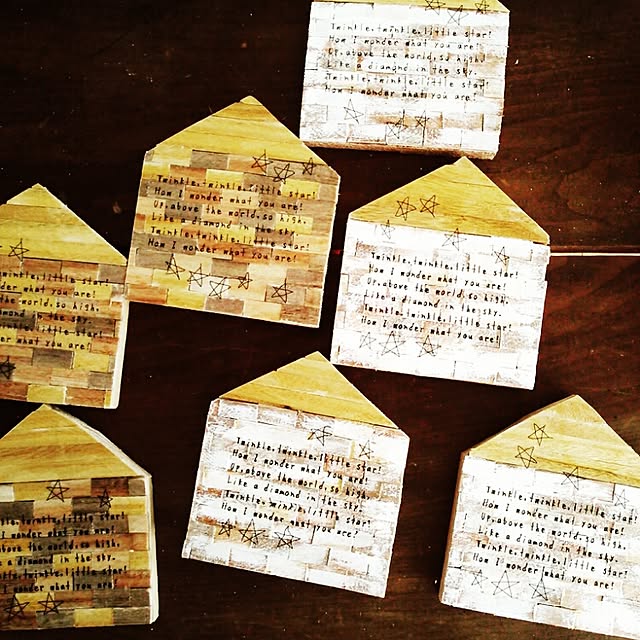 Twinkle,twinkle,little star!
How I wonder what you are!
Up above the world,so high,
Like a diamond in the sky.
Twinkle,twinkle,little star!
How I wonder what you are!
Twinkle,twinkle,little star!
How I wonder what you are!
Up above the world,so high,
Like a diamond in the sky.
Twinkle,twinkle,little star!
How I wonder what you are!
Twinkle,twinkle,little star!
How I wonder what you are!
Up above the world,so high,
Like a diamond in the sky.
Twinkle,twinkle,little star!
How I wonder what you are!
twinkle,little star!
wonder what you are!
the world,so high,
diamond in the sky.
little star!
wonder what you are!
Twinkle,twinkle,little star!
How I wonder what you are!
Up above the world,so high,
Like a diamond in the sky.
Twinkle,twinkle,little star!
How I wonder what you are?
twinkle,little star!
wonder what you are!
above the world,so high,
a diamond in the sky.
twinkle,little star!
wonder what you are!
Twinkle,twinkle,little star!
How I wonder what you are!
Up above the world,so high,
Like a diamond in the sky.
Twinkle,twinkle,little star!
How I wonder what you are!